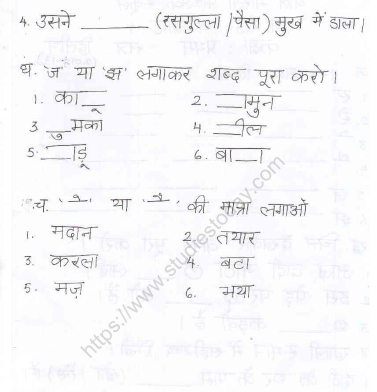 4. उसने ________ (रसगुल्ला / पैसा) मुख में डाला।
ध. 'ज' या 'झ' लगाकर शब्द पूरा करो।
1. का__ू 2. __ामुन
3. __ुमका 4. __ील
5. __ाड़ू 6. बा__ा
च. ' े ' या ' ै ' की मात्रा लगाओ
1. मदान 2. तयार
3. करला 4. बटा
5. मज़ 6. भया
https://www.studiestoday.com